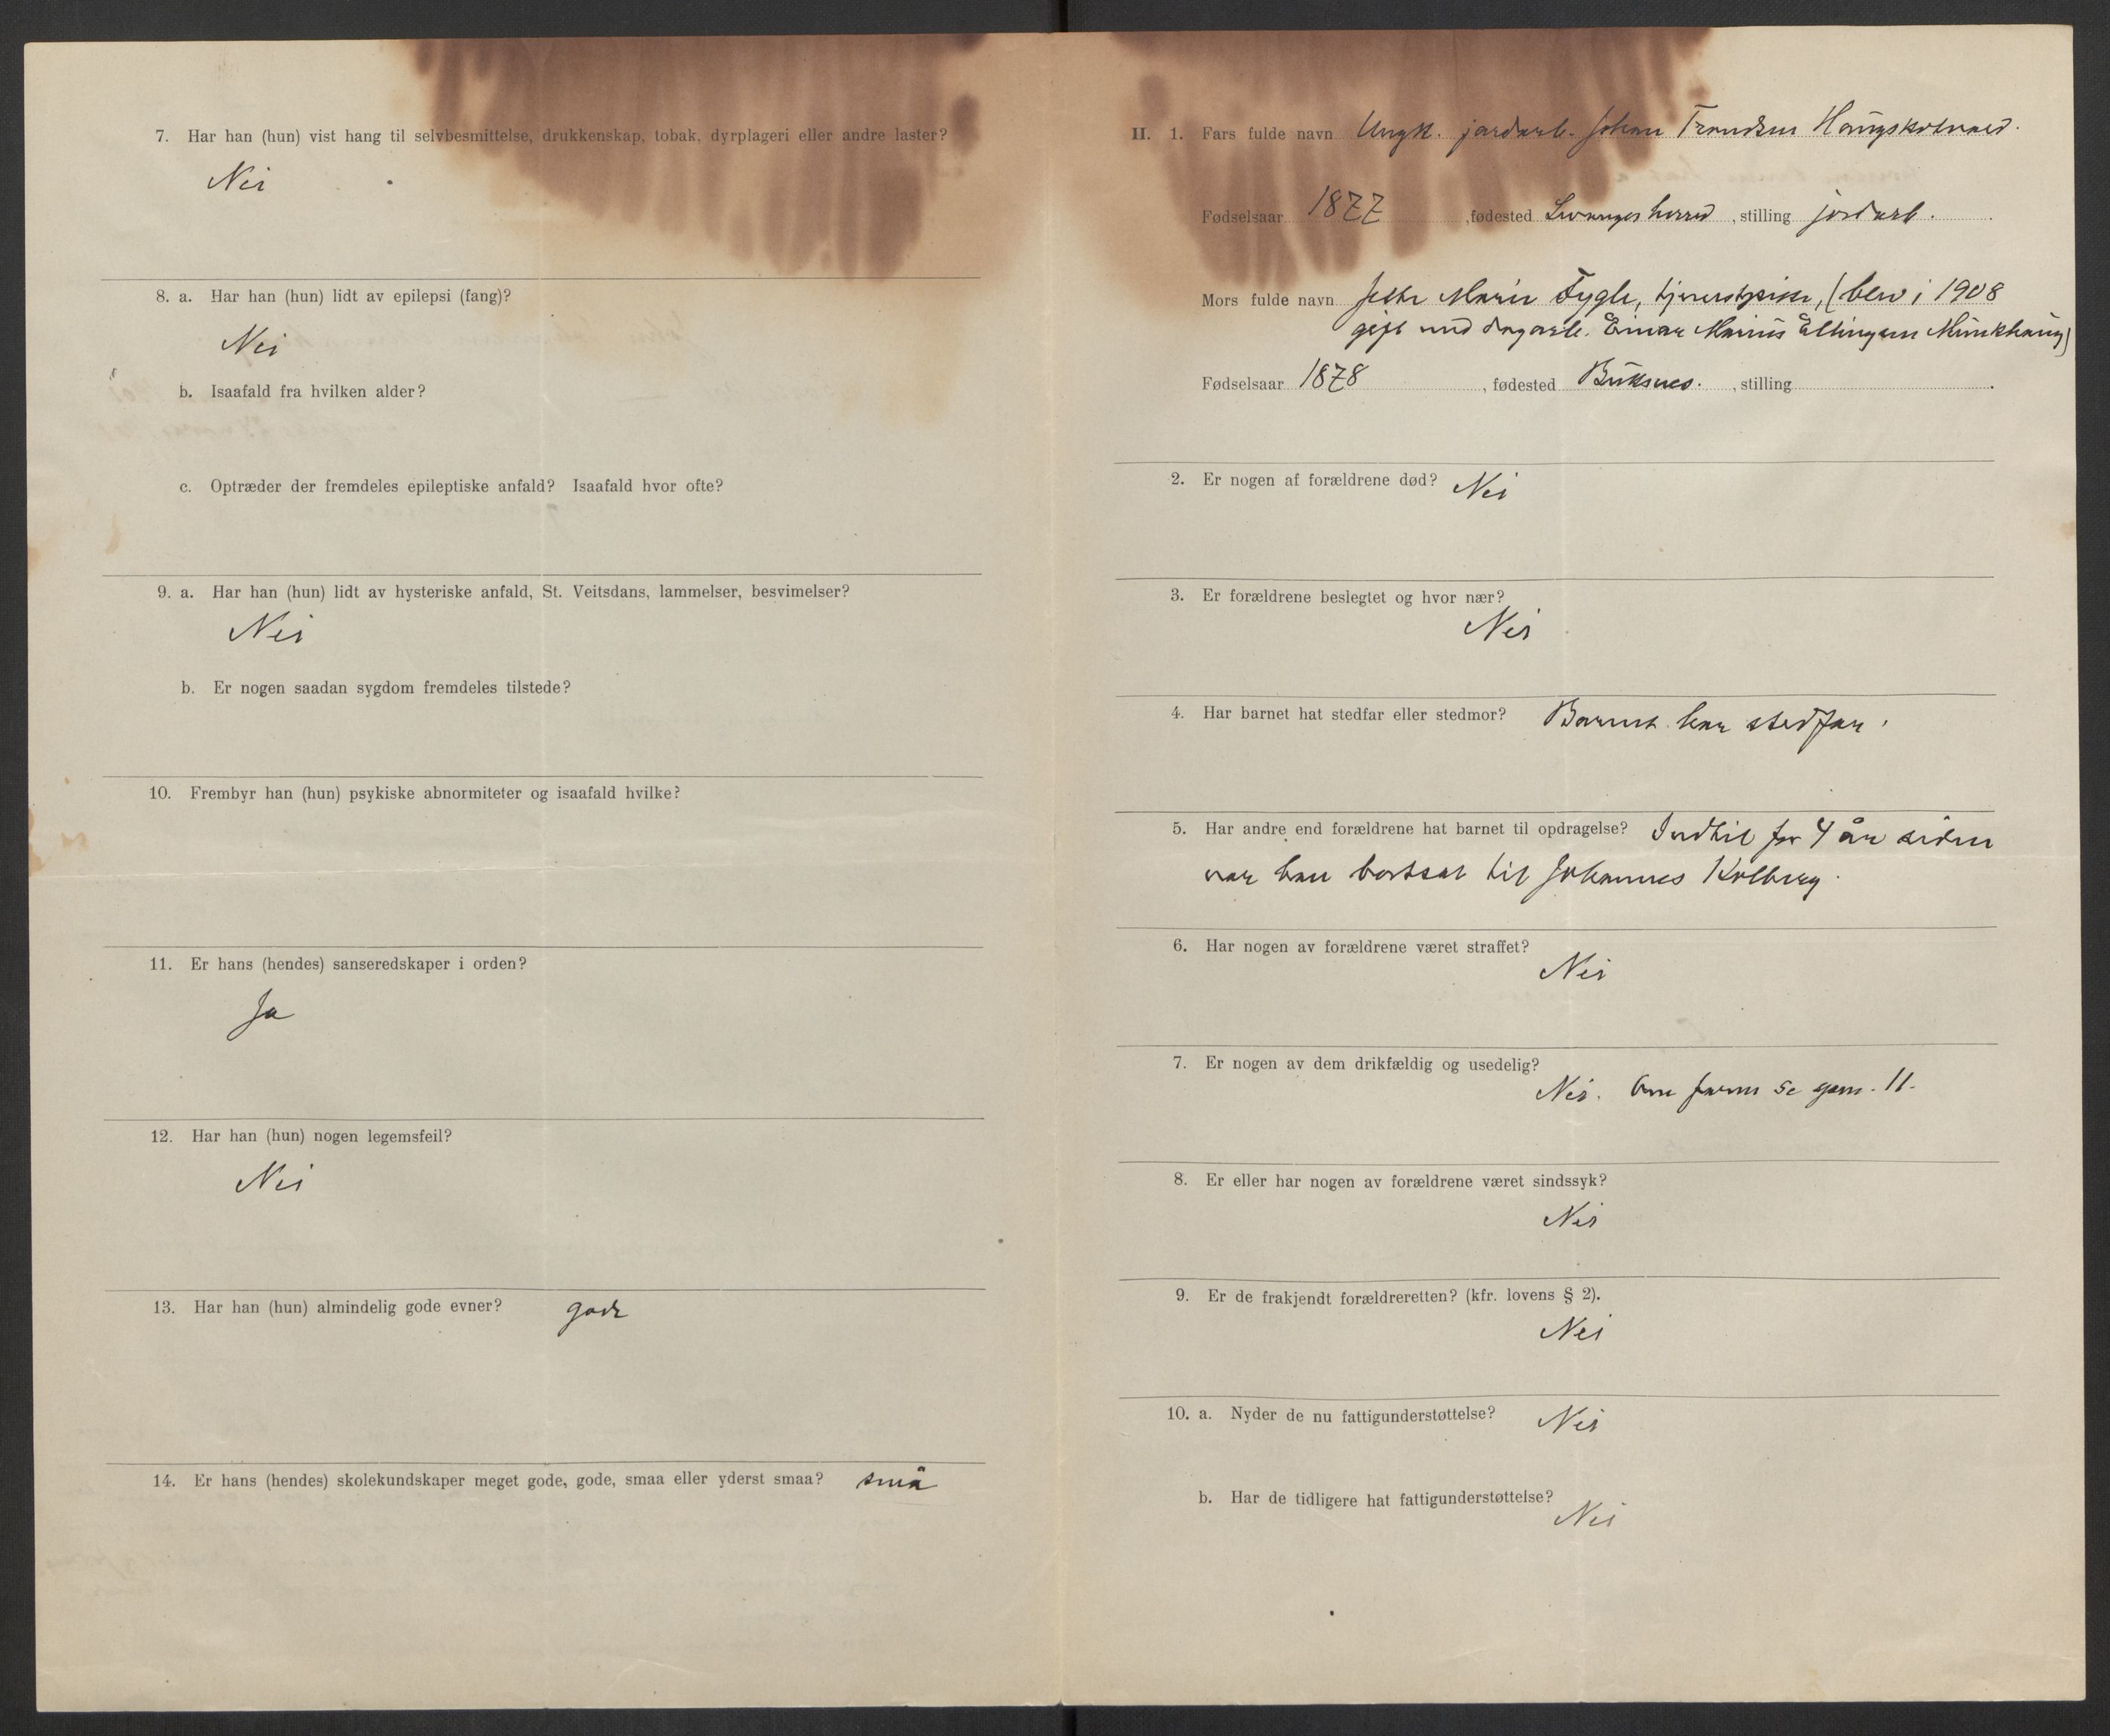 7. Har han (hun) vist hang til selvbesmittelse, drukkenskap, tobak, dyrplageri eller andre laster?
Nei
8. a. Har han (hun) lidt av epilepsi (fang)?
Nei
b. Isaafald fra hvilken alder?
c. Optræder der fremdeles epileptiske anfald? Isaafald hvor ofte?
9. a. Har han (hun) lidt av hysteriske anfald, St. Veitsdans, lammelser, besvimelser?
Nei
b. Er nogen saadan sygdom fremdeles tilstede?
10. Frembyr han (hun) psykiske abnormiteter og isaafald hvilke?
11. Er hans (hendes) sanseredskaper i orden?
Ja
12. Har han (hun) nogen legemsfeil?
Nei
13. Har han (hun) almindelig gode evner? gode
14. Er hans (hendes) skolekundskaper meget gode, gode, smaa eller yderst smaa? små
II. 1. Fars fulde navn Ungk. jordarb. Johan
Fødselsaar 1877, fødested herred, stilling jordarb.
Mors fulde navn Marie Fygle, (blev i 1908
gift med dagarb. Einar Marius Munkhaug)
Fødselsaar 1878, fødested Buksnes., stilling
2. Er nogen af forældrene død? Nei
3. Er forældrene beslegtet og hvor nær?
Nei
4. Har barnet hat stedfar eller stedmor? Barnet har stedfar.
5. Har andre end forældrene hat barnet til opdragelse? Indtil for 4 år siden
var han bortsat til Johannes Kolberg.
6. Har nogen av forældrene været straffet?
Nei
7. Er nogen av dem drikfældig og usedelig?
Nei. Om faren se 11.
8. Er eller har nogen av forældrene været sindssyk?
Nei
9. Er de frakjendt forældreretten? (kfr. lovens § 2).
Nei
10. a. Nyder de nu fattigunderstøttelse? Nei
b. Har de tidligere hat fattigunderstøttelse?
Nei